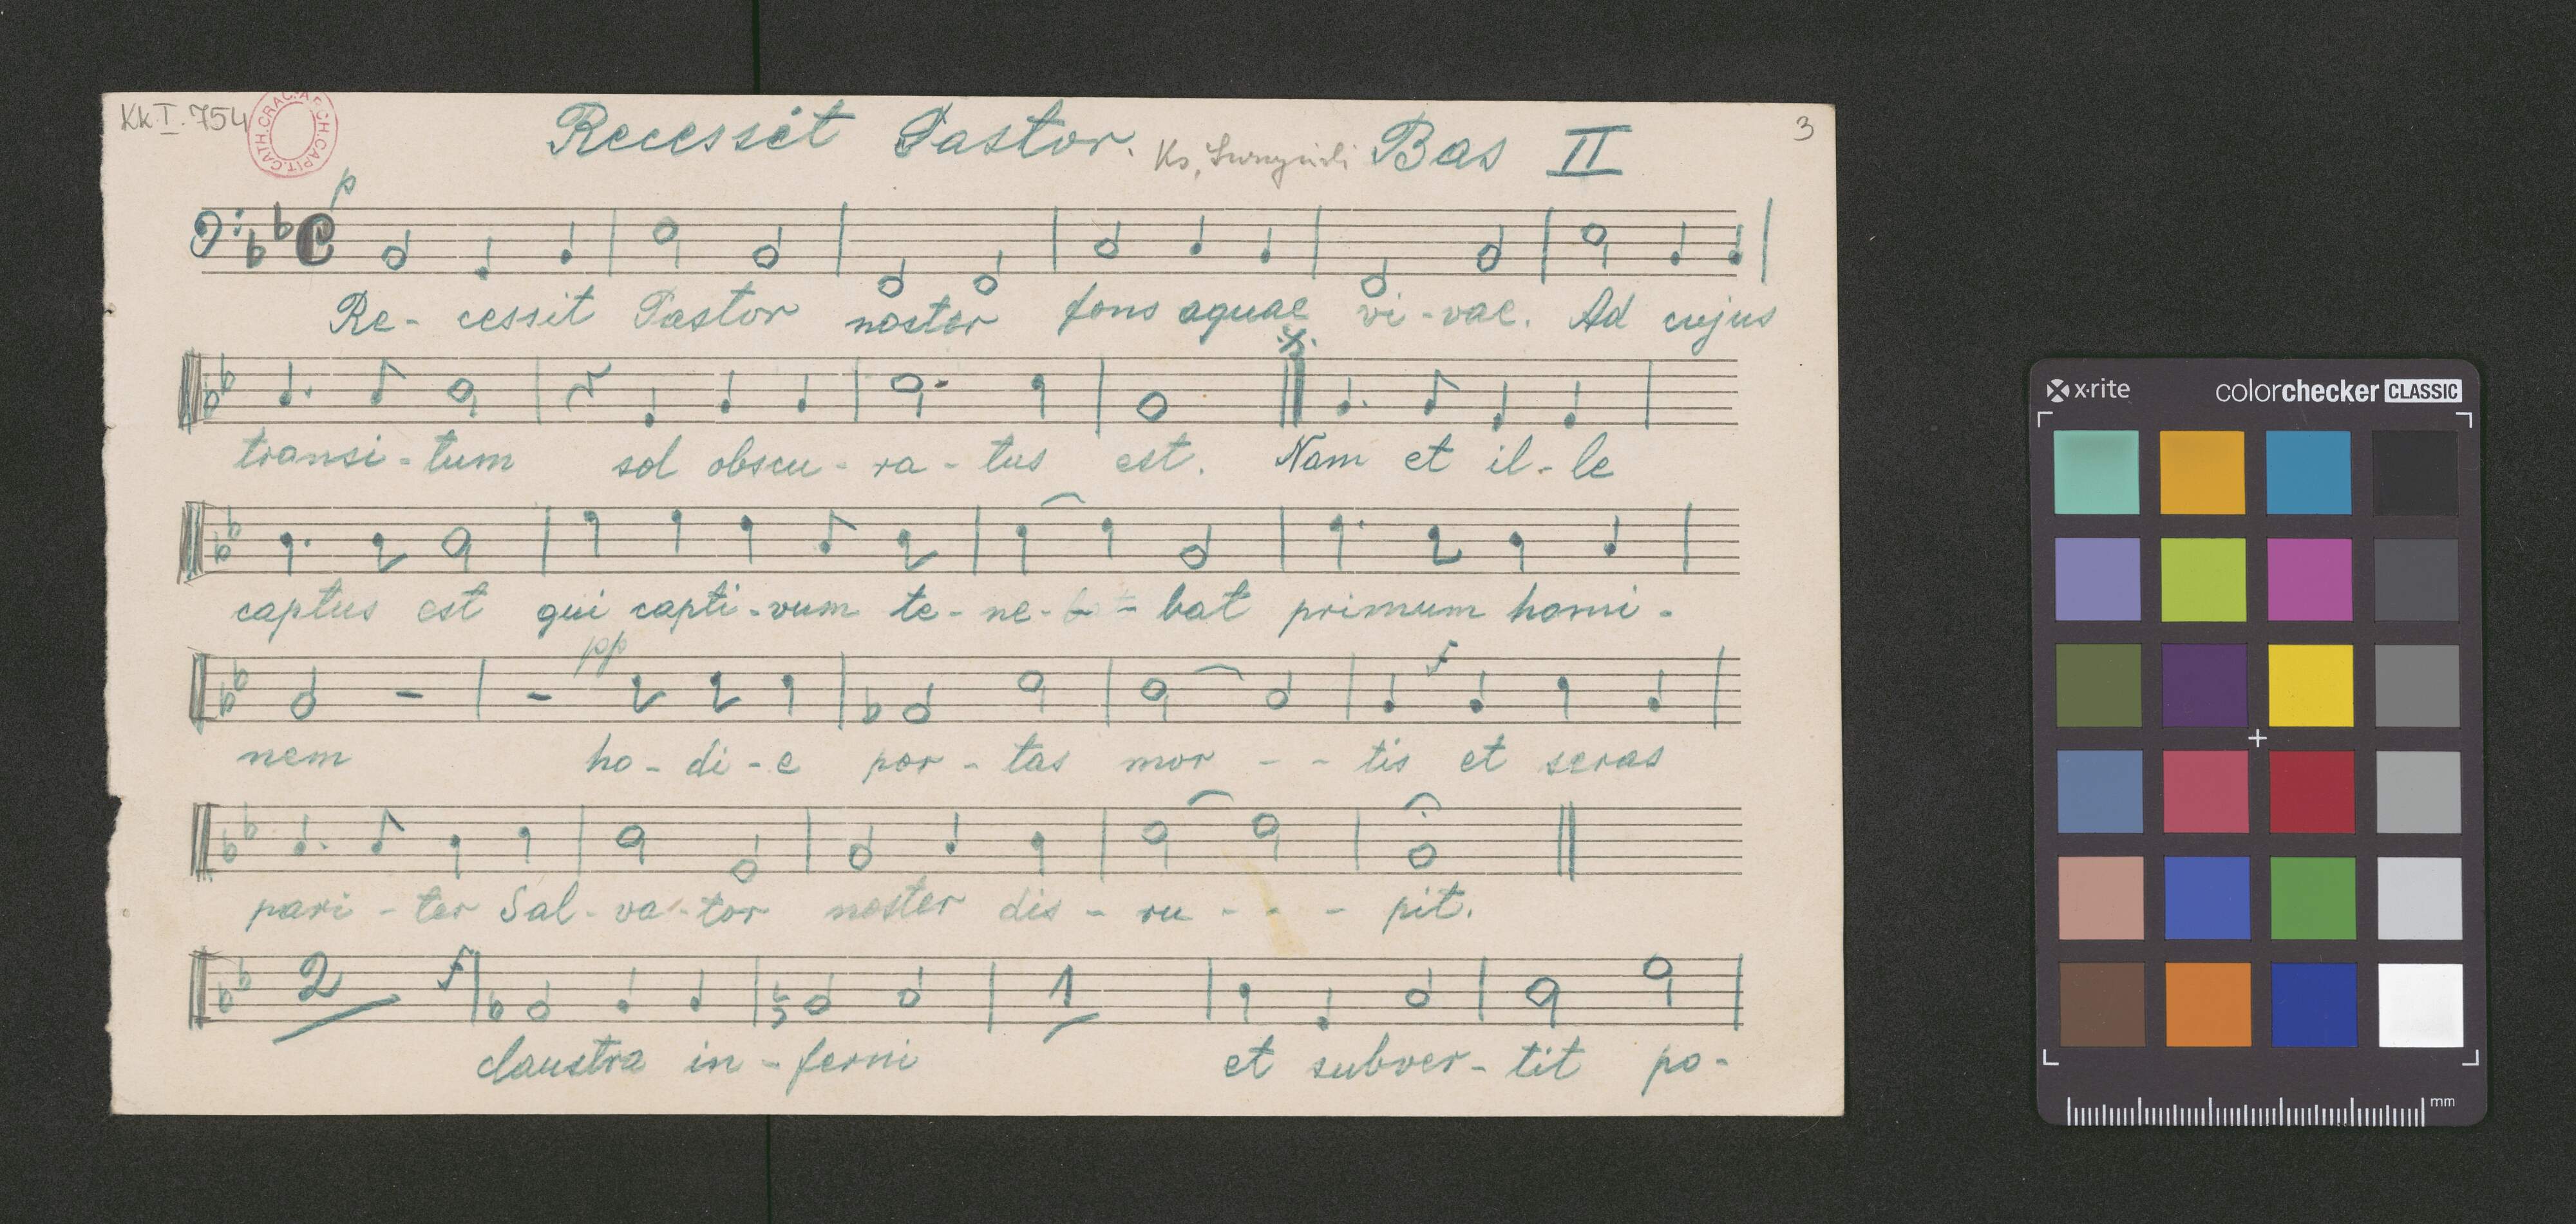 Kk.I.754
ARCH.CAPIT.CATH.CRAC.
Recessit Pastor. Ks. Bas II
3
p
Re- cessit Pastor noster fons aquae vi-vae. Ad cujus
transi-tum sol obscu-ra-tus est. Nam et il-le
captus est qui capti-vum te-ne- - bat primum homi-
pp
f
nem ho-di-e por-tas mor - - tis et seras
pari-ter Sal-va-tor noster dis-ru - - - pit.
2 f 1
claustra in-ferni et subver-tit po-
x·rite colorchecker CLASSIC
mm